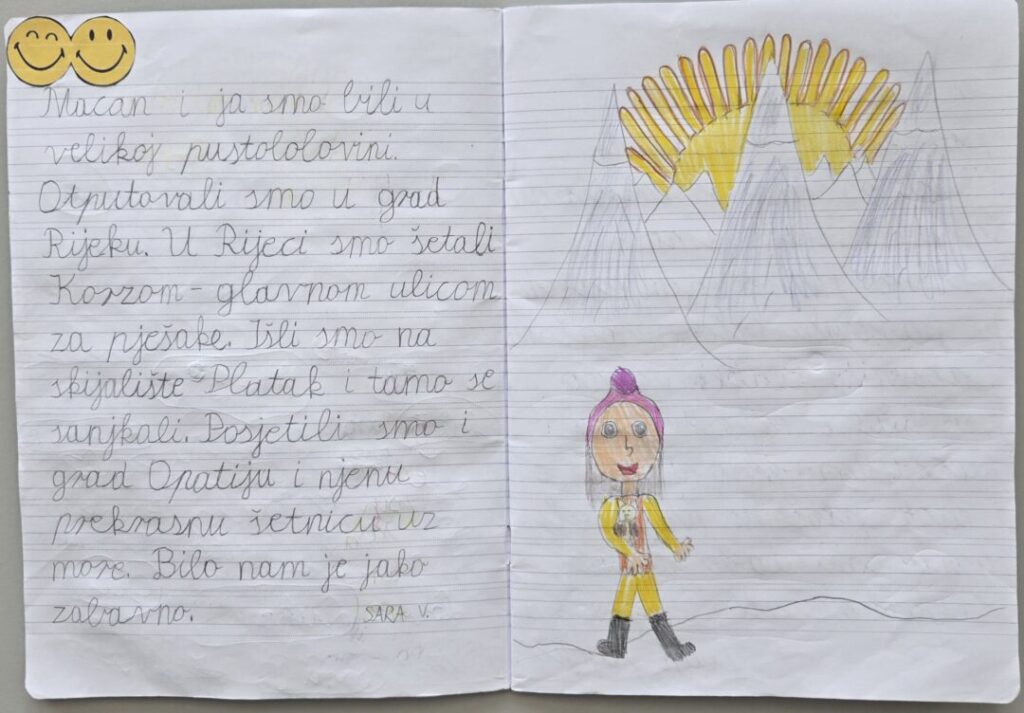 Macan i ja smo bili u
velikoj pustololovini.
Otputovali smo u grad
Rijeku. U Rijeci smo šetali
Korzom - glavnom ulicom
za pješake. Išli smo na
skijalište Platak i tamo se
sanjkali. Posjetili smo i
grad Opatiju i njenu
prekrasnu šetnicu uz
more. Bilo nam je jako
zabavno. SARA V.